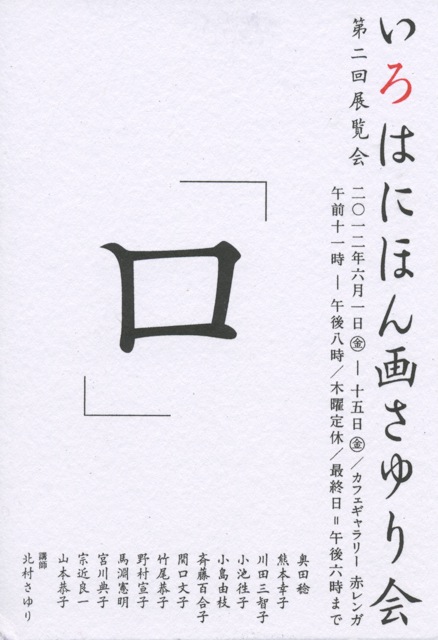 いろはにほん画さゆり会
第二回展覧会
二〇一二年六月一日㊎—十五日㊎/カフェギャラリー 赤レンガ
午前十一時—午後八時/木曜定休/最終日=午後六時まで
「ロ」
奥田稔
熊本幸子
川田三智子
小池徃子
小島由枝
斉藤百合子
関口文子
竹尾恭子
野村宣子
馬淵憲明
宮川典子
宗近良一
山本恭子
講師
北村さゆり